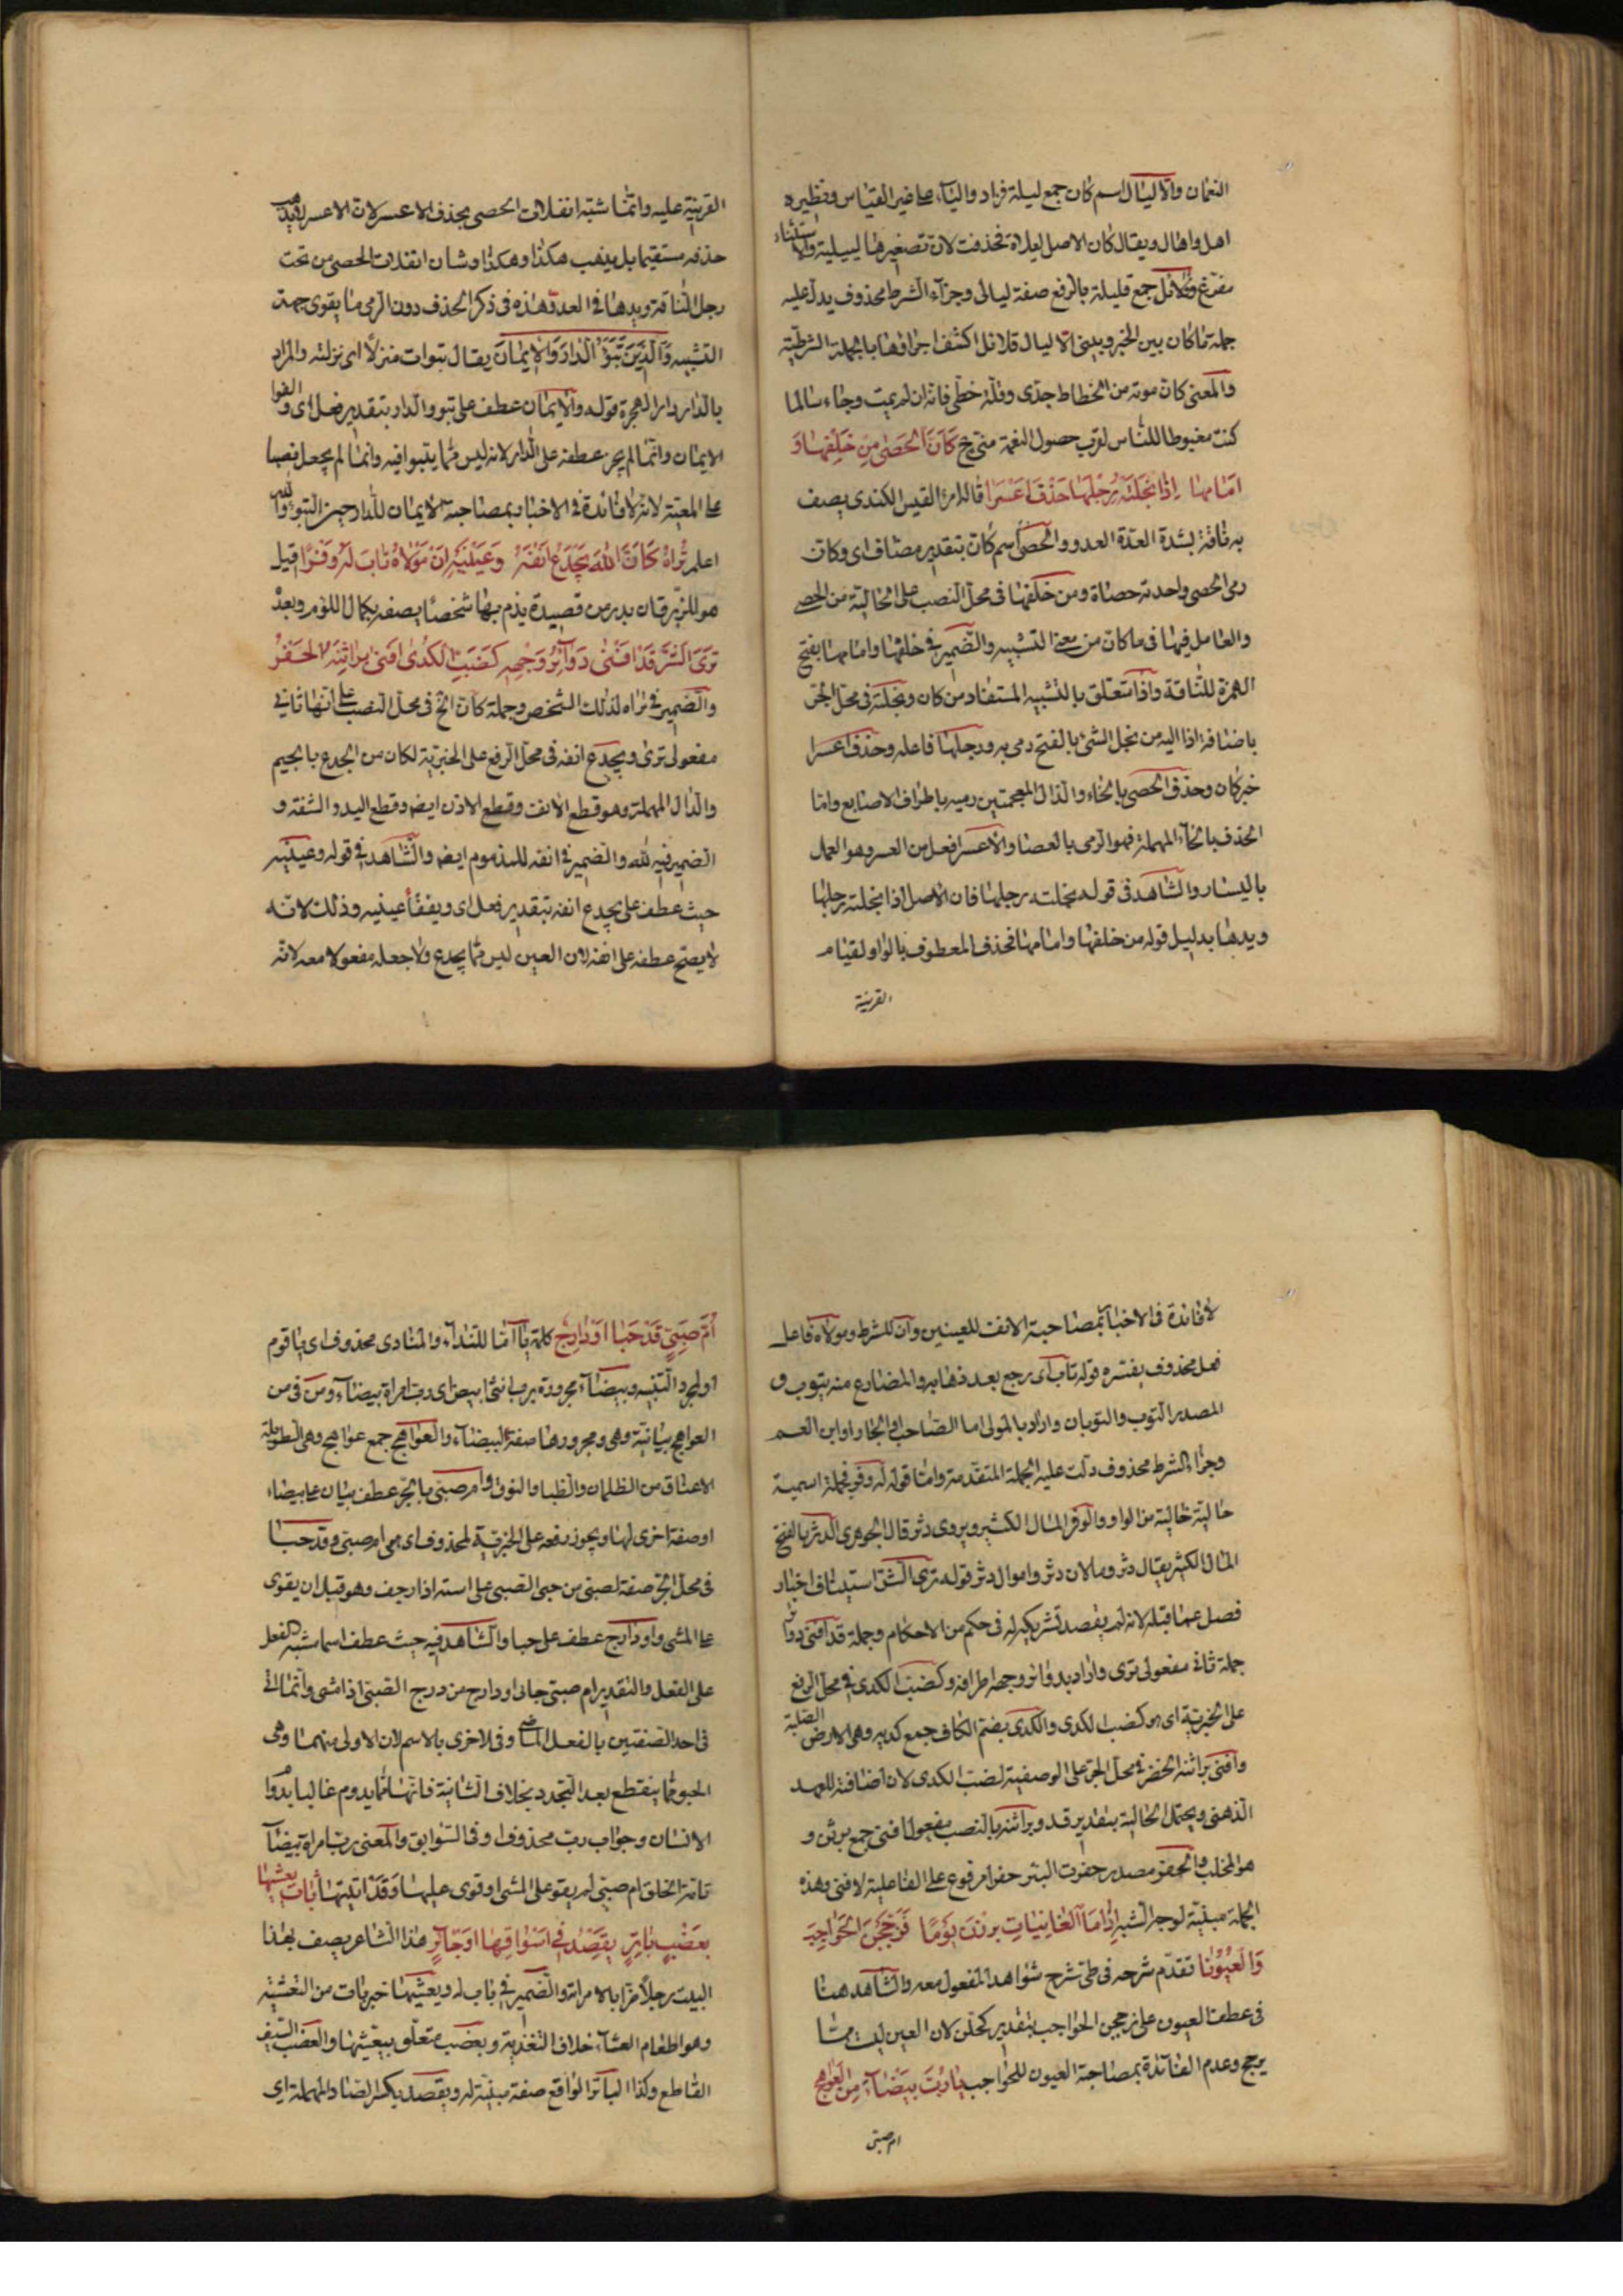 النعمان والا ليال اسم كان جمع ليلة فزاد والياء على غير القياس ونظيره
اهل واهال ويقال كان الاصل ليلاة فحذفت لان تصغيرها لييلية والاستثناء
مفرغ وقلائل جمع قليلة بالرفع صفة ليالى وجزاء الشرط محذوف يدل عليه
جملة ما كان بين الخير وبينى الا ليال قلائل اكشف احرافها بالجملة الشرطية
والمعنى كان موته من انحطاط جدى وقلة خطى فانه ان لم يمت وجاء سالما
كنت مغبوطا للناس لقرب حصول النعمة منى خ كَاَنَّ الْحَصٰى مِنْ خَلْفِهَا وَ
اَمَامِهَا اِذَا نَجَلَتْهُ رِجْلُهَا حَذْفُ اَعْسَرَا قاله امرؤ القيس الكندى يصف
به ناقة بشدة العدو والحصى اسم كان بتقدير مضاف اى وكان
رمى الحصى واحدته حصاة ومن خلفها فى محل النصب على الحالية من الحصى
والعامل فيها فى ما كان من معنى التشبيه والضمير فى خلفها وامامها بفتح
الهمزة للناقة واذا متعلق بالتشبيه المستفاد من كان ونجلته فى محل الجر
باضافة اذا اليه من نجل الشئ بالفتح رمى به ورجلها فاعله وحذف اعسرا
خبر كان وحذف الحصى بالخاء والذال المعجمتين رميه باطراف الاصابع واما
الحذف بالحاء المهملة فهو الرمى بالعصا والاعسر افعل من العسر وهو العمل
باليسار والشاهد فى قوله نجلته رجلها فان الاصل اذا نجلته رجلها
ويدها بدليل قوله من خلفها وامامها فحذف المعطوف بالواو لقيام
القرينة
القرينة عليه وانما شبه انفلات الحصى بحذف الاعسر لان الاعسر لا يذهب
حذفه مستقيما بل يذهب هكذا وهكذا وشان انفلات الحصى من تحت
رجل الناقة ويدها فى العدو هذه فى ذكر الحذف دون الرمى ما يقوى جهة
التشبيه وَالَّذِينَ تَبَوَّؤُ الدَّارَ وَالْاِيمَانَ يقال تبوات منزلا اى نزلته والمراد
بالدار دار الهجرة قوله والايمان عطف على تبوو الدار بتقدير فعل اى والفوا
الايمان وانما لم يجز عطفه على الدار لانه ليس مما يتبوا فيه وانما لم يجعل نصبا
على المعية لانه لا فائدة فى الاخبار بمصاحبة الايمان للدار حين التبوء والله
اعلم تَرَاهُ كَاَنَّ اللّٰهَ يَجْدَعُ اَنْفَهُ وَعَيْنَيْهِ اِنْ مَوْلَاهُ تَابَ لَهُ وَفْرٌ قيل
هو للزبرقان بدر من قصيدة يذم بها شخصا يصفه بكمال اللؤم وبعده
تَرَى الشَّرَّ قَدْ اَفْنٰى دَوَائِرُ وَجْهِهِ كَضَبِّ الْكُدٰى اَفْنٰى بَرَاثِنَهُ الْحَفْرُ
والضمير فى تراه لذلك الشخص وجملة كان الخ فى محل النصب على انها ثانى
مفعولى ترى ويجدع انفه فى محل الرفع على الخبرية لكان من الجدع بالجيم
والدال المهملة وهو قطع الانف وقطع الاذن ايض وقطع اليد والشفة و
الضمير فيه لله والضمير فى انفه للمذموم ايض والشاهد فى قوله وعينيه
حيث عطف على يجدع انفه بتقدير فعل اى ويفقأ عينيه وذلك لانه
لا يصح عطفه على انفه لان العين ليس مما يجدع ولا جعله مفعولا معه لانه
لا فائدة فى الاخبار بمصاحبة الانف للعينين وان للشرط ومولاه فاعل
فعل محذوف يفسره قوله تاب اى رجع بعد ذهابه والمضارع منه يتوب و
المصدر التوب والتوبان واراد بالمولى اما الصاحب او الجار او ابن العم
وجزاء الشرط محذوف دلت عليه الجملة المتقدمة واما قوله له وفر فجملة اسمية
حالية خالية من الواو والوفر المال الكثير ويروى دثر قال الجوهرى الدثر بالفتح
المال الكثير يقال دثر ومالان دثر واموال دثر قوله ترى الشر استيناف اخبار
فصل عما قبله لانه لم يقصد تشريكه له فى حكم من الاحكام وجملة قد افنى دوائر
جملة ثانى مفعولى ترى واراد بدوائر وجهه اطرافه وكضب الكدى فى محل الرفع
على الخبرية اى هو كضب الكدى والكدى بضم الكاف جمع كدية وهى الارض الصلبة
وافنى براثنه الحفر فى محل الجر على الوصفية لضب الكدى لان اضافة للعهد
الذهنى ويحتمل الحالية بتقدير قد وبراثنه بالنصب مفعول افنى جمع برثن و
هو المخلب والحفر مصدر حفرت البئر حفرا مرفوع على الفاعلية لافنى وهذه
الجملة مبنية لوجه الشبه اِذَا مَا الْغَانِيَاتُ بَرَزْنَ يَوْمًا فَزَجَّجْنَ الْحَوَاجِبَ
وَالْعُيُونَا تقدم شرحه فى طى شرح شواهد المفعول معه والشاهد هنا
فى عطف العيون على زججن الحواجب بتقدير كحلن لان العين ليست مما
يزجج وعدم الفائدة بمصاحبة العيون للحواجب يَارُبَّ بَيْضَاءَ مِنَ الْعَوَاهِجِ
ام صبى
اُمِّ صَبِيٍّ قَدْ حَبَا اَوْ دَارِجِ كلمة يا اما للنداء والمنادى محذوف اى يا قوم
او لمجرد التنبيه وبيضاء مجرورة برب انثى ابيض اى رب امراة بيضاء ومن فى من
العواهج بيانية وهى ومجرورها صفة البيضاء والعواهج جمع عواهج وهى الطويلة
الاعناق من الظلمان والظباء والنوق وام صبى بالجر عطف بيان على بيضاء
او صفة اخرى لها ويجوز رفعه على الخبرية لمحذوف اى هى ام صبى وقد حبا
فى محل الجر صفة لصبى من حبى الصبى على استه اذا زحف وهو قبل ان يقوى
على المشى واو دارج عطف على حبا والشاهد فيه حيث عطف اسما شبه الفعل
على الفعل والتقدير ام صبى حاب او دارج من درج الصبى اذا مشى وانما اتى
فى احد الصفتين بالفعل الماضى وفى الاخرى بالاسم لان الاولى منهما وهى
الحبو مما ينقطع بعد التجدد بخلاف الثانية فانها مما يدوم غالبا بدوام
الانسان وجواب رب محذوف او فى السوابق والمعنى رب امراة بيضاء
تامة الخلق ام صبى لم يقو على المشى او قوى عليها وَقَدْ اَتَيْتُهَا بَاتَ يُعَشِّيهَا
بِعَضْبٍ بَاتِرٍ يَقْصِدُ فِى اَسْوُقِهَا اَوْ جَائِرِ هذا الشاعر يصف بهذا
البيت رجلا قرا بالامراة والضمير فى بات له ويعشيها خبر بات من التعشية
وهو اطعام العشاء خلاف التغذية وبعضب متعلق بيعشيها والعضب السيف
القاطع وكذا الباتر الواقع صفة مبنية له ويقصد بكسر الصاد المهملة اى